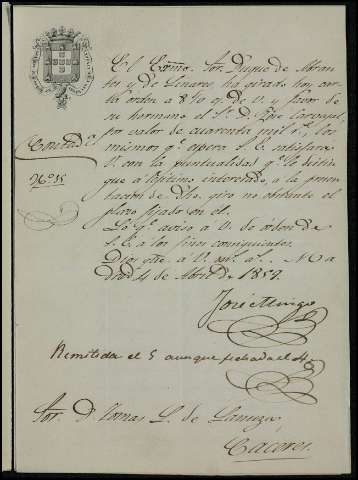 El Exmo. Sor. Duque de Abran
tes y de Linares ha girado hoy
orden a 8 d/v. de V. y favor de
su hermano el Sr. D. José Carvajal,
por valor de cuarenta mil rs., los
mismos qe. espera S. E. satisfará
V. con la puntualidad qe. le distin
gue á lejítimo interesado, á la presen
tacion de dho. giro no obstante el
plazo fijado en el.
Contada.
No. 15
Lo qe. aviso á V. de órden de
S. E. á los fines consiguientes.
Dios gue. á V. ms. as. Ma
drid 4 de Abril de 1859.
José Mingo
Remitida el 5 aunque fechada el 4.
Sor. D. Tomas L. de Lanuza,
Caceres.